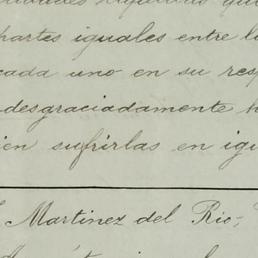 partes iguales entre l
cada uno en su resp
desgraciadamente h
ien sufrirlas en igu
Martinez del Rio,